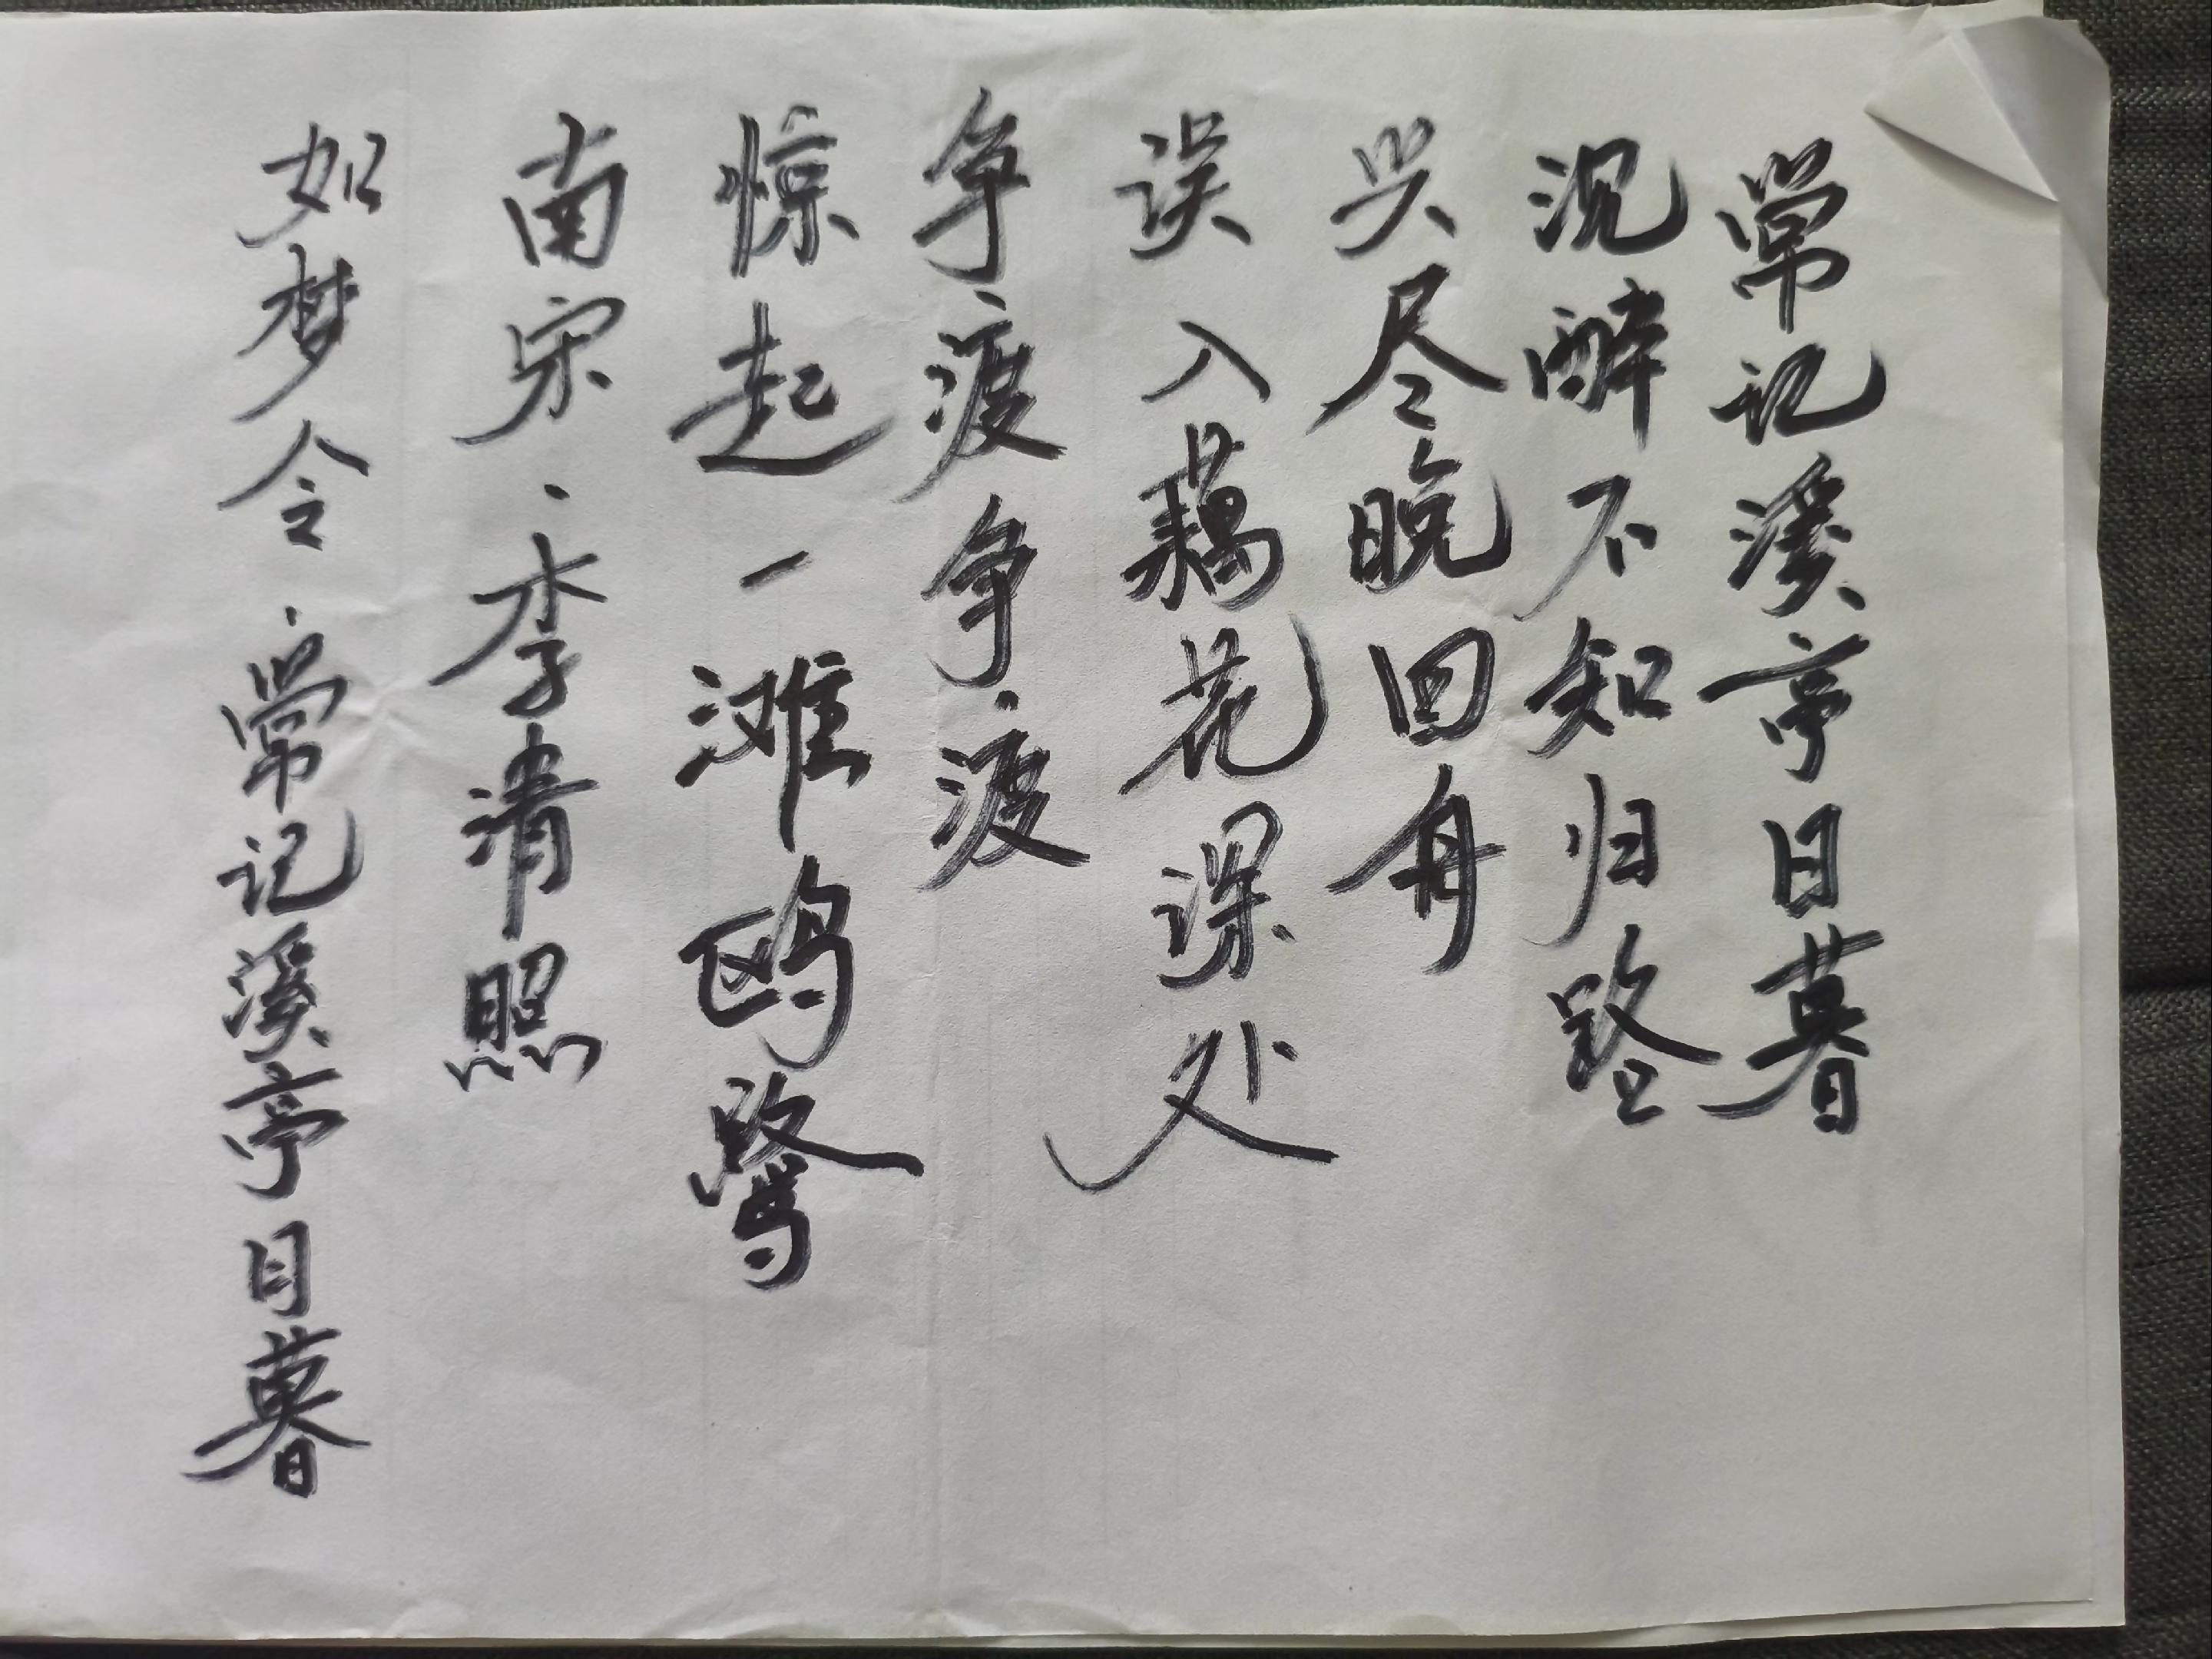 常记溪亭日暮
沉醉不知归路
兴尽晚回舟
误入藕花深处
争渡争渡
惊起一滩鸥鹭
南宋·李清照
如梦令·常记溪亭日暮